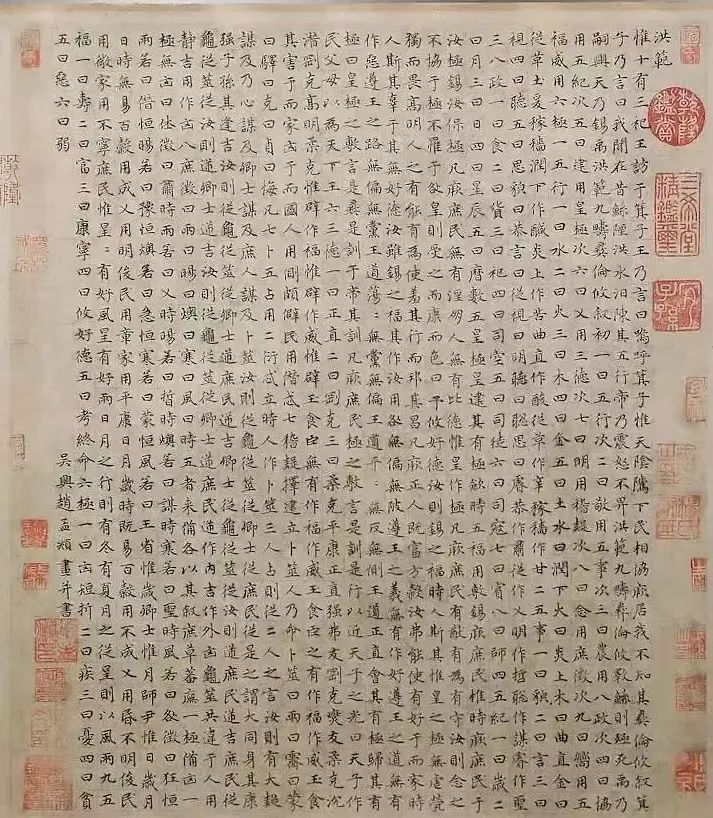 洪範
惟十有三祀王訪于箕子王乃言曰嗚呼箕子惟天陰騭下民相協厥居我不知其彝倫攸叙箕
子乃言曰我聞在昔鯀陻洪水汨陳其五行帝乃震怒不畀洪範九疇彝倫攸斁鯀則殛死禹乃
嗣興天乃錫禹洪範九疇彝倫攸叙初一曰五行次二曰敬用五事次三曰農用八政次四曰協
用五紀次五曰建用皇極次六曰乂用三德次七曰明用稽疑次八曰念用庶徵次九曰嚮用五
福威用六極一五行一曰水二曰火三曰木四曰金五曰土水曰潤下火曰炎上木曰曲直金曰
從革土爰稼穡潤下作鹹炎上作苦曲直作酸從革作辛稼穡作甘二五事一曰貌二曰言三曰
視四曰聽五曰思貌曰恭言曰從視曰明聽曰聰思曰睿恭作肅從作乂明作哲聰作謀睿作聖
三八政一曰食二曰貨三曰祀四曰司空五曰司徒六曰司寇七曰賓八曰師四五紀一曰歲二
曰月三曰日四曰星辰五曰曆數五皇極皇建其有極斂時五福用敷錫厥庶民惟時厥庶民于
汝極錫汝保極凡厥庶民無有淫朋人無有比德惟皇作極凡厥庶民有猷有為有守汝則念之
不協于極不罹于咎皇則受之而康而色曰予攸好德汝則錫之福時人斯其惟皇之極無虐煢
獨而畏高明人之有能有為使羞其行而邦其昌凡厥正人既富方穀汝弗能使有好于而家時
人斯其辜于其無好德汝雖錫之福其作汝用咎無偏無陂遵王之義無有作好遵王之道無有
作惡遵王之路無偏無黨王道蕩〻無黨無偏王道平〻無反無側王道正直會其有極歸其有
極曰皇極之敷言是彝是訓于帝其訓凡厥庶民極之敷言是訓是行以近天子之光曰天子作
民父母以為天下王六三德一曰正直二曰剛克三曰柔克平康正直强弗友剛克燮友柔克沉
潛剛克高明柔克惟辟作福惟辟作威惟辟玉食臣無有作福作威玉食臣之有作福作威玉食
其害于而家凶于而國人用側頗僻民用僭忒七稽疑擇建立卜筮人乃命卜筮曰雨曰霽曰蒙
曰驛曰克曰貞曰悔凡七卜五占用二衍忒立時人作卜筮三人占則從二人之言汝則有大疑
謀及乃心謀及卿士謀及庶人謀及卜筮汝則從龜從筮從卿士從庶民從是之謂大同身其康
强子孫其逢吉汝則從龜從筮從卿士逆庶民逆吉卿士從龜從筮從汝則逆庶民逆吉庶民從
龜從筮從汝則逆卿士逆吉汝則從龜從筮逆卿士逆庶民逆作內吉作外凶龜筮共違于人用
静吉用作凶八庶徵曰雨曰暘曰燠曰寒曰風曰時五者來備各以其叙庶草蕃廡一極備凶一
極無凶曰休徵曰肅時雨若曰乂時暘若曰哲時燠若曰謀時寒若曰聖時風若曰咎徵曰狂恒
雨若曰僭恒暘若曰豫恒燠若曰急恒寒若曰蒙恒風若曰王省惟歲卿士惟月師尹惟日歲月
日時無易百穀用成乂用明俊民用章家用平康日月歲時既易百穀用不成乂用昏不明俊民
用微家用不寧庶民惟星〻有好風星有好雨日月之行則有冬有夏月之從星則以風雨九五
福一曰壽二曰富三曰康寧四曰攸好德五曰考終命六極一曰凶短折二曰疾三曰憂四曰貧
五曰惡六曰弱
吳興趙孟頫畫并書
乾隆鑑賞
三希堂精鑑璽
宜子孫